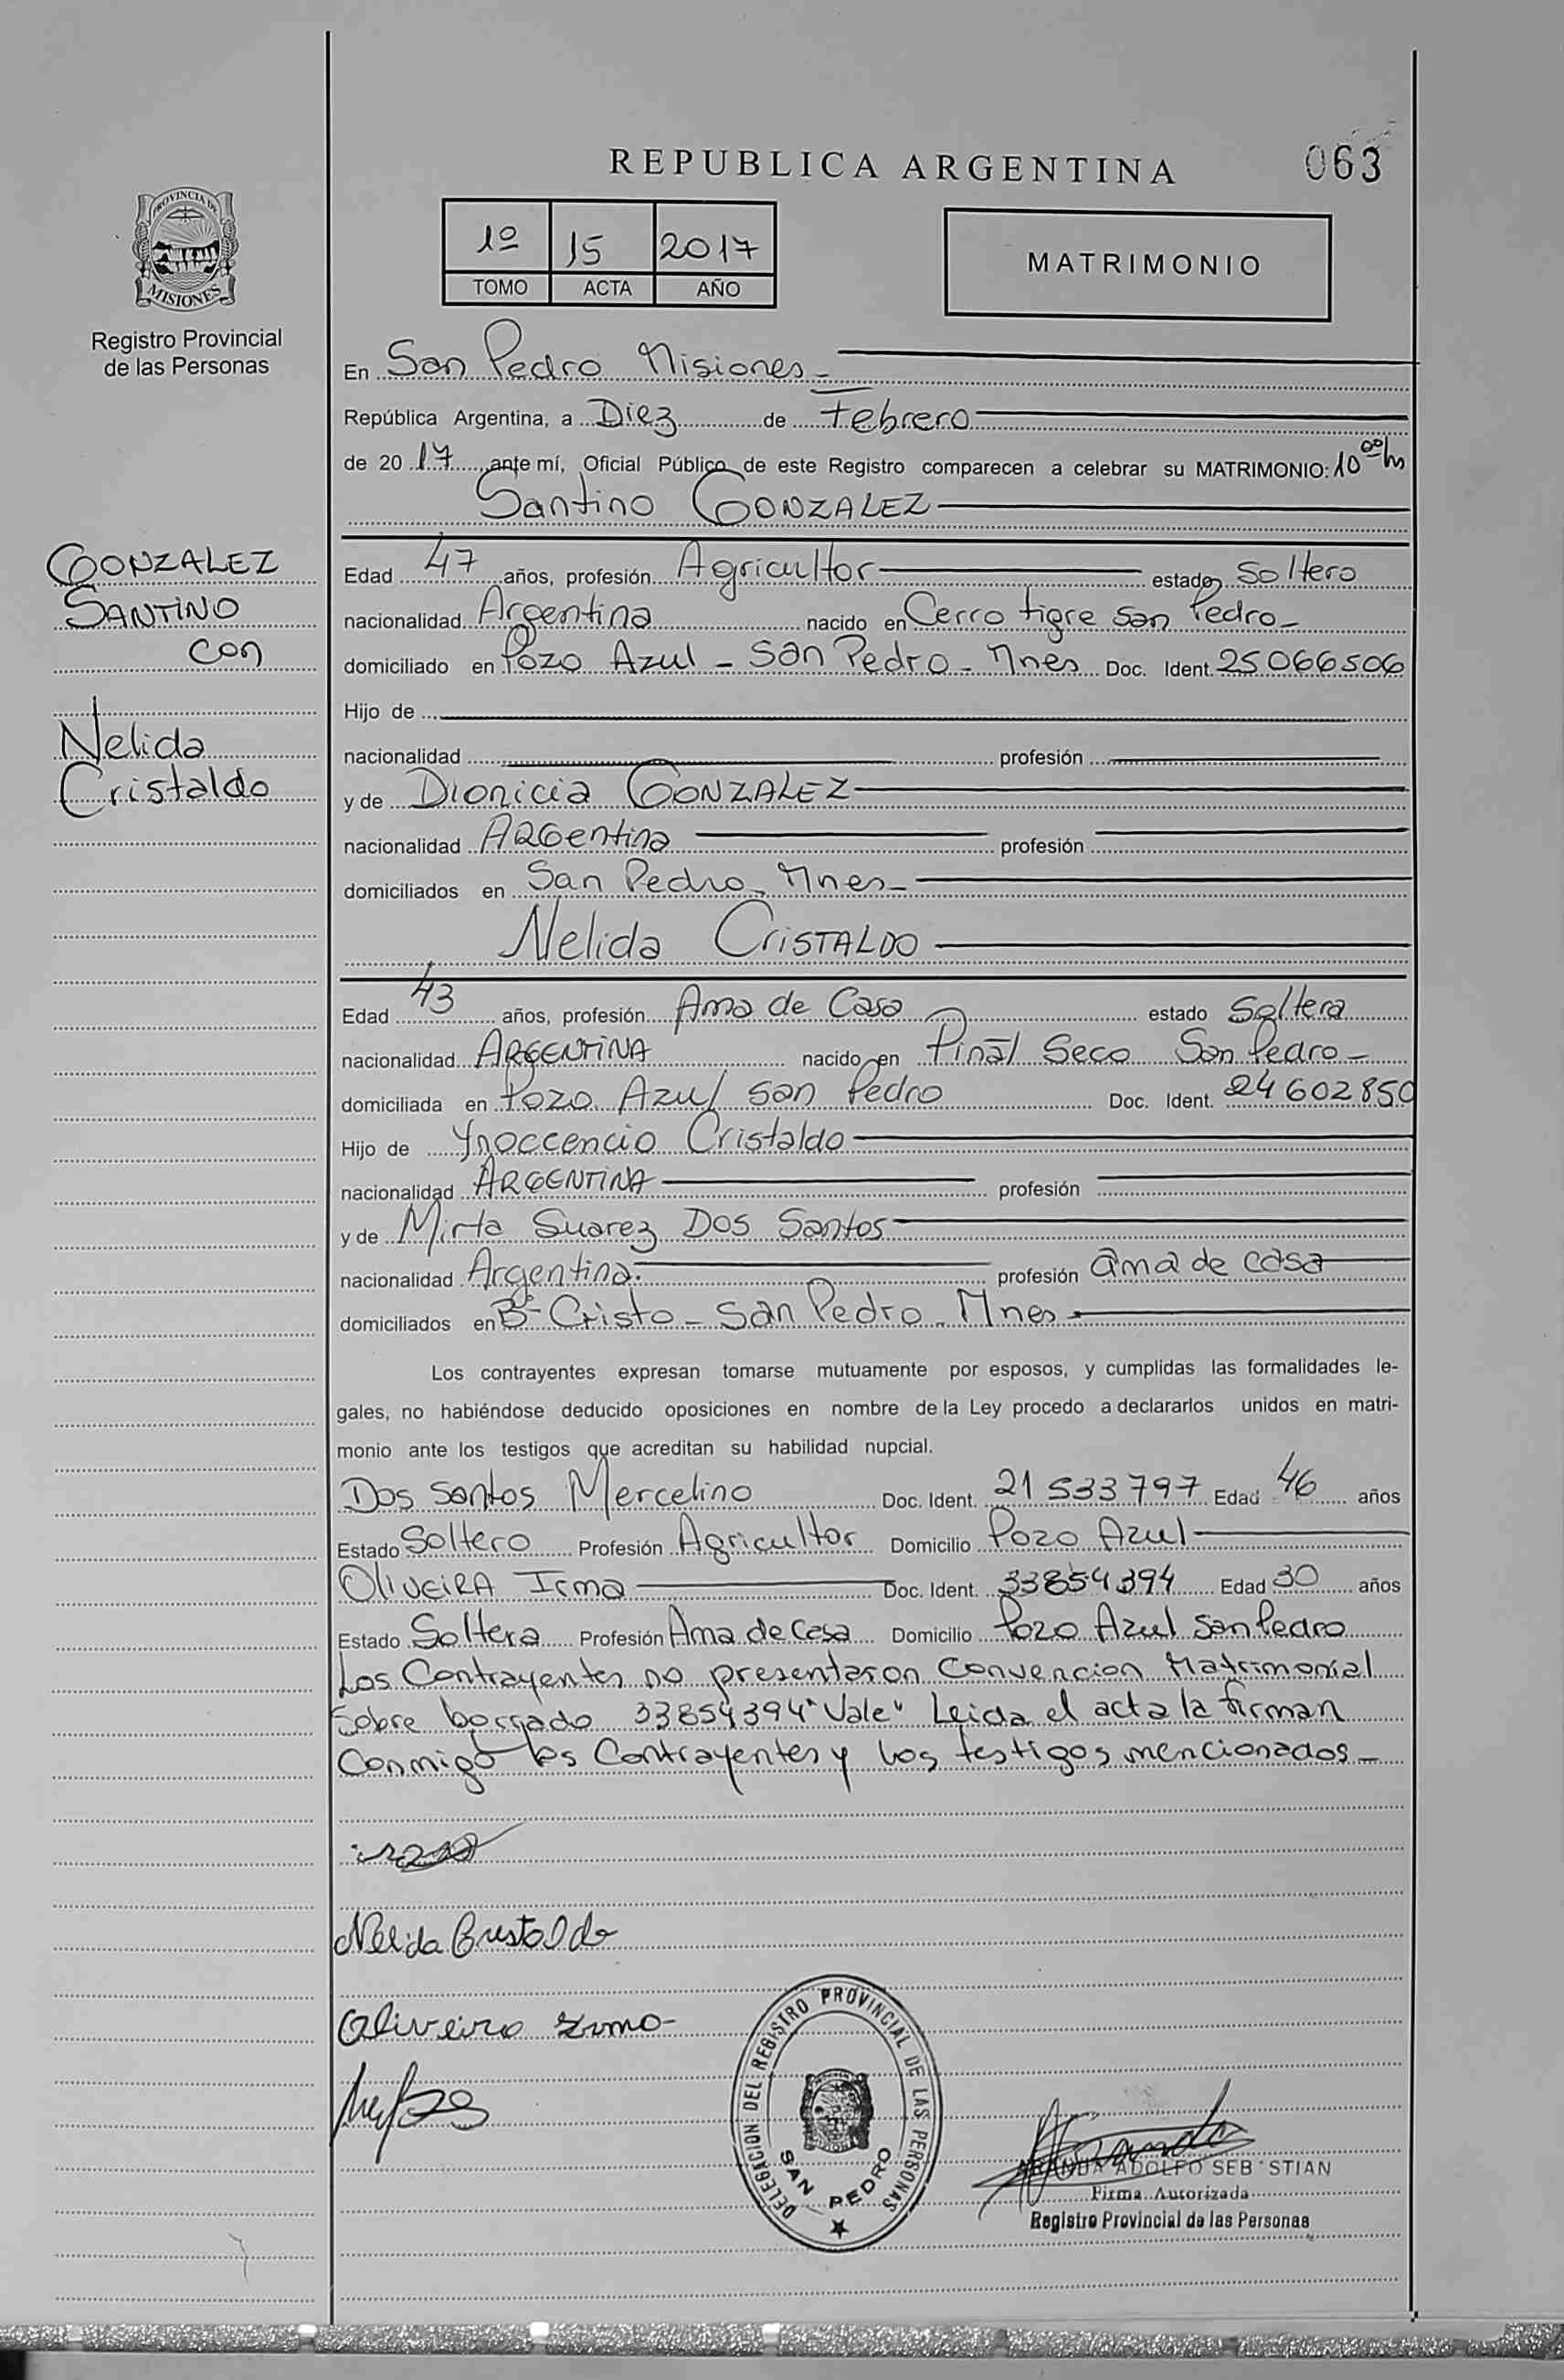 REPUBLICA ARGENTINA
063
PROVINCIA DE
MISIONES
Registro Provincial
de las Personas
1º 15 2017
TOMO ACTA AÑO
MATRIMONIO
En San Pedro Misiones
República Argentina, a Diez de Febrero
de 20 17 ante mí, Oficial Público de este Registro comparecen a celebrar su MATRIMONIO: 10 00 hs
Santino GONZALEZ
GONZALEZ
SANTINO
con
Nelida
Cristaldo
Edad 47 años, profesión Agricultor estado Soltero
nacionalidad Argentina nacido en Cerro tigre San Pedro
domiciliado en Pozo Azul - San Pedro - Mnes Doc. Ident. 25066506
Hijo de
nacionalidad profesión
y de Dionicia GONZALEZ
nacionalidad ARGentina profesión
domiciliados en San Pedro - Mnes
Nelida CRISTALDO
Edad 43 años, profesión Ama de Casa estado Soltera
nacionalidad ARGENTINA nacido en Pinal Seco San Pedro
domiciliada en Pozo Azul San Pedro Doc. Ident. 24602850
Hijo de Ynoccencio Cristaldo
nacionalidad ARGENTINA profesión
y de Mirta Suarez Dos Santos
nacionalidad Argentina profesión ama de casa
domiciliados en Bº Cristo - San Pedro - Mnes
Los contrayentes expresan tomarse mutuamente por esposos, y cumplidas las formalidades le-
gales, no habiéndose deducido oposiciones en nombre de la Ley procedo a declararlos unidos en matri-
monio ante los testigos que acreditan su habilidad nupcial.
Dos Santos Mercelino Doc. Ident. 21533797 Edad 46 años
Estado Soltero Profesión Agricultor Domicilio Pozo Azul
OLIVEIRA Irma Doc. Ident. 33854394 Edad 30 años
Estado Soltera Profesión Ama de Casa Domicilio Pozo Azul San Pedro
Los Contrayentes no presentaron Convencion Matrimonial
Sobre borrado 33854394 "Vale" Leida el acta la firman
Conmigo los Contrayentes y los testigos mencionados
Nelida Cristaldo
Oliveira Irma
DELEGACION DEL REGISTRO PROVINCIAL DE LAS PERSONAS
SAN PEDRO
ADOLFO SEB STIAN
Firma Autorizada
Registro Provincial de las Personas